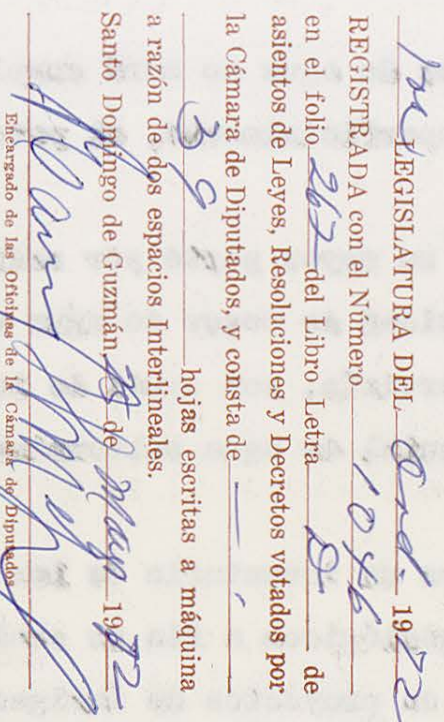 1ra LEGISLATURA DEL Ord 1972
REGISTRADA con el Número 1046
en el folio 267 del Libro Letra D de
asientos de Leyes, Resoluciones y Decretos votados por
la Cámara de Diputados y consta de —
39 hojas escritas a máquina
a razón de dos espacios Interlineales.
Santo Domingo de Guzmán de Mayo 1972
Encargado de las Oficinas de la Cámara de Diputados